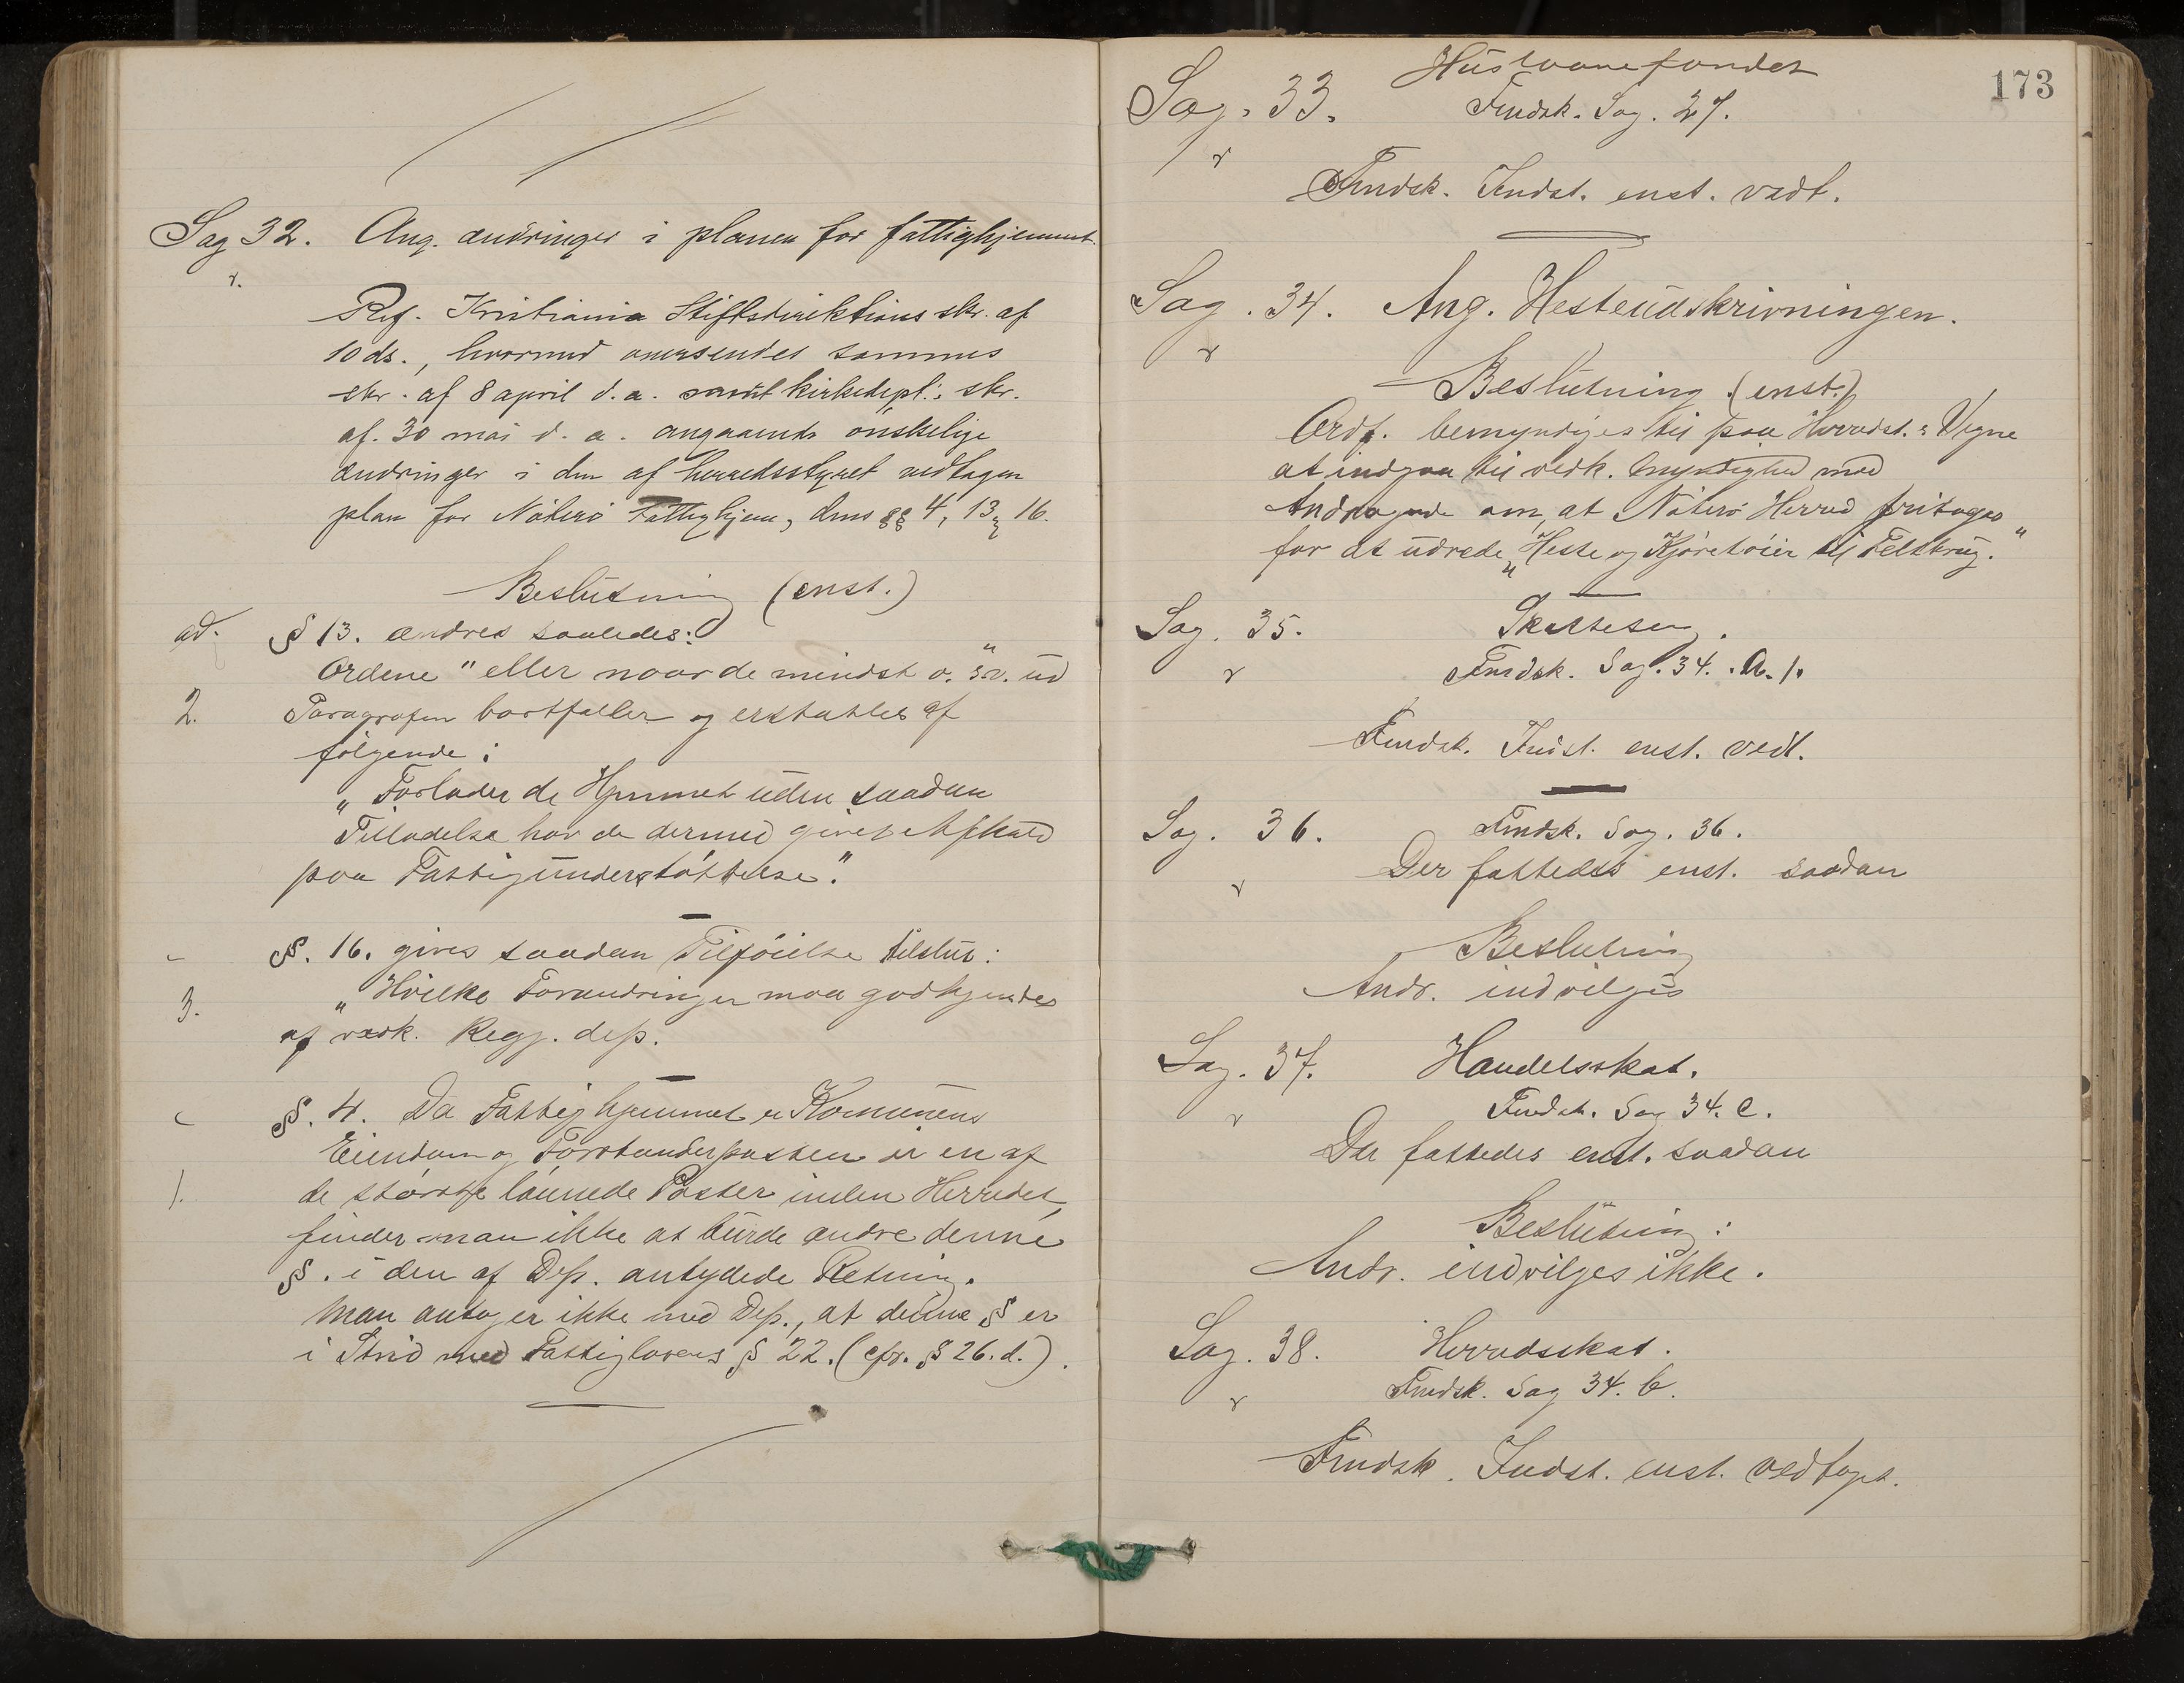 Sag 32. Ang. ændringer i planen for fattighjemmet.
Ref. Kristiania Stiftsdirektions skr. af
10 ds., hvormed oversendes sammes
skr. af 8 april d. a. samt kirkedept.s skr.
af 30 mai d. a. angaaende ønskelige
ændringer i den af herredsstyret vedtagen
plan for Nøterø Fattighjem, dens §§ 4, 13 & 16.
Beslutning (enst.)
ad. § 13. ændres saaledes:
Ordene "eller naar de mindst o. s. v." ud
2. Paragrafen bortfaller og erstattes af
følgende:
„Forlader de Hjemmet uden saadan
Tilladelse har de dermed givet Afkald
paa Fattigunderstøttelse."
- §. 16. gives saadan Tilføielse tilslut:
3. „Hvilke Forandringer maa godkjendes
af vedk. Regj. dep.
- §. 4. Da Fattighjemmet er Komunens
Eiendom og Forstanderposten er en af
1. de største lønnede Poster inden Herredet,
finder man ikke at burde ændre denne
§. i den af Dep. antydede Retning.
Man antager ikke med Dep., at denne § er
i Strid med Fattiglovens § 22. (cfr. § 26. d.).
173
Huslaanefondet
Sag. 33. Fmdsk. Sag. 27.
Fmdsk. Indst. enst. vedt.
Sag. 34. Ang. Hesteudskrivningen.
Beslutning (enst.)
Ordf. bemyndiges til paa Herredst.s Vegne
at indgaa til vedk. Myndighed med
Andragende om, at Nøterø Herred fritages
for at udrede „Heste og Kjøretøier til Feltbrug."
Sag. 35. Skattesag.
Fmdsk. Sag. 34. A. 1.
Fmdsk. Indst. enst. vedt.
Sag. 36. Fmdsk. Sag. 36.
Der fattedes enst. saadan
Beslutning
Andr. indvilges
Sag. 37. Handelsskat.
Fmdsk. Sag 34. C.
Der fattedes enst. saadan
Beslutning:
Andr. indvilges ikke.
Sag. 38. Herredsskat.
Fmdsk. Sag 34. b.
Fmdsk. Indst. enst. vedtaget.